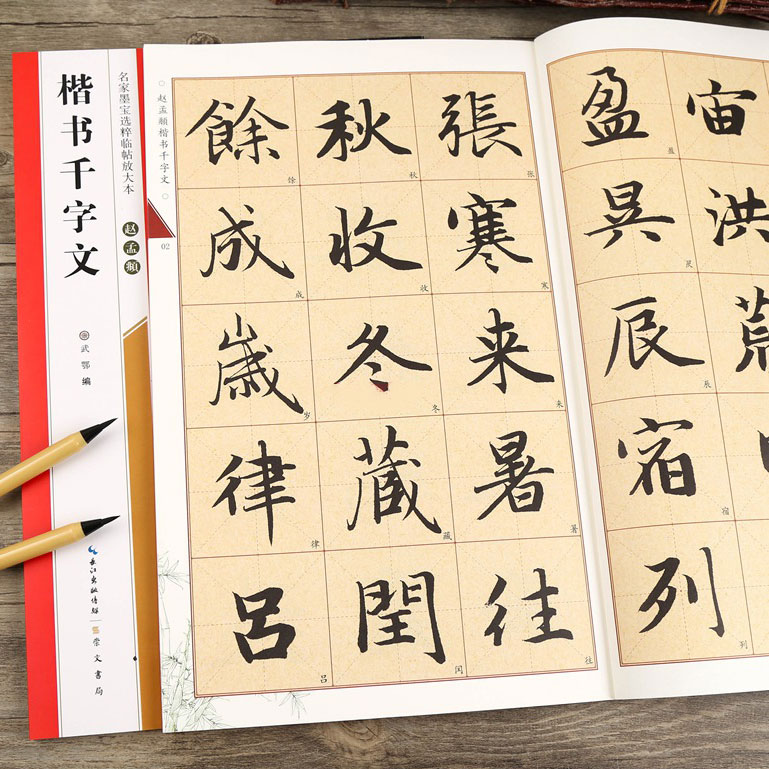 名家墨宝选粹临帖放大本
赵孟頫
楷书千字文
武鄂 编
长江出版传媒
崇文书局
赵孟頫楷书千字文
02
宙洪荒
盈昃辰宿列
盈昃辰宿列
張寒来暑往
张寒来暑往
秋收冬藏閏
秋收冬藏闰
餘成歲律呂
馀成岁律吕